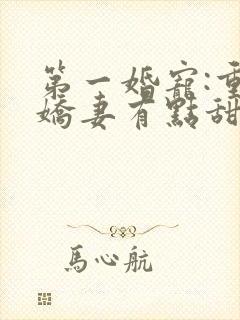 第一婚寵:重
嬌妻有點甜
馬心航